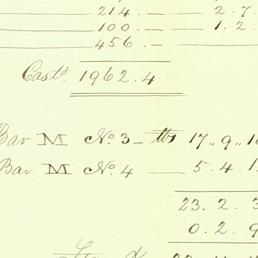 214 . — 2 . 7 .
100 . — 1 . 2 .
456 . —
Casts. 1962 . 4
Bar M No. 3 — 17 .. 9 .. 1
Bar M No. 4 — 5 . 4 . 1
23 . 2 . 3
0 . 2 . 9